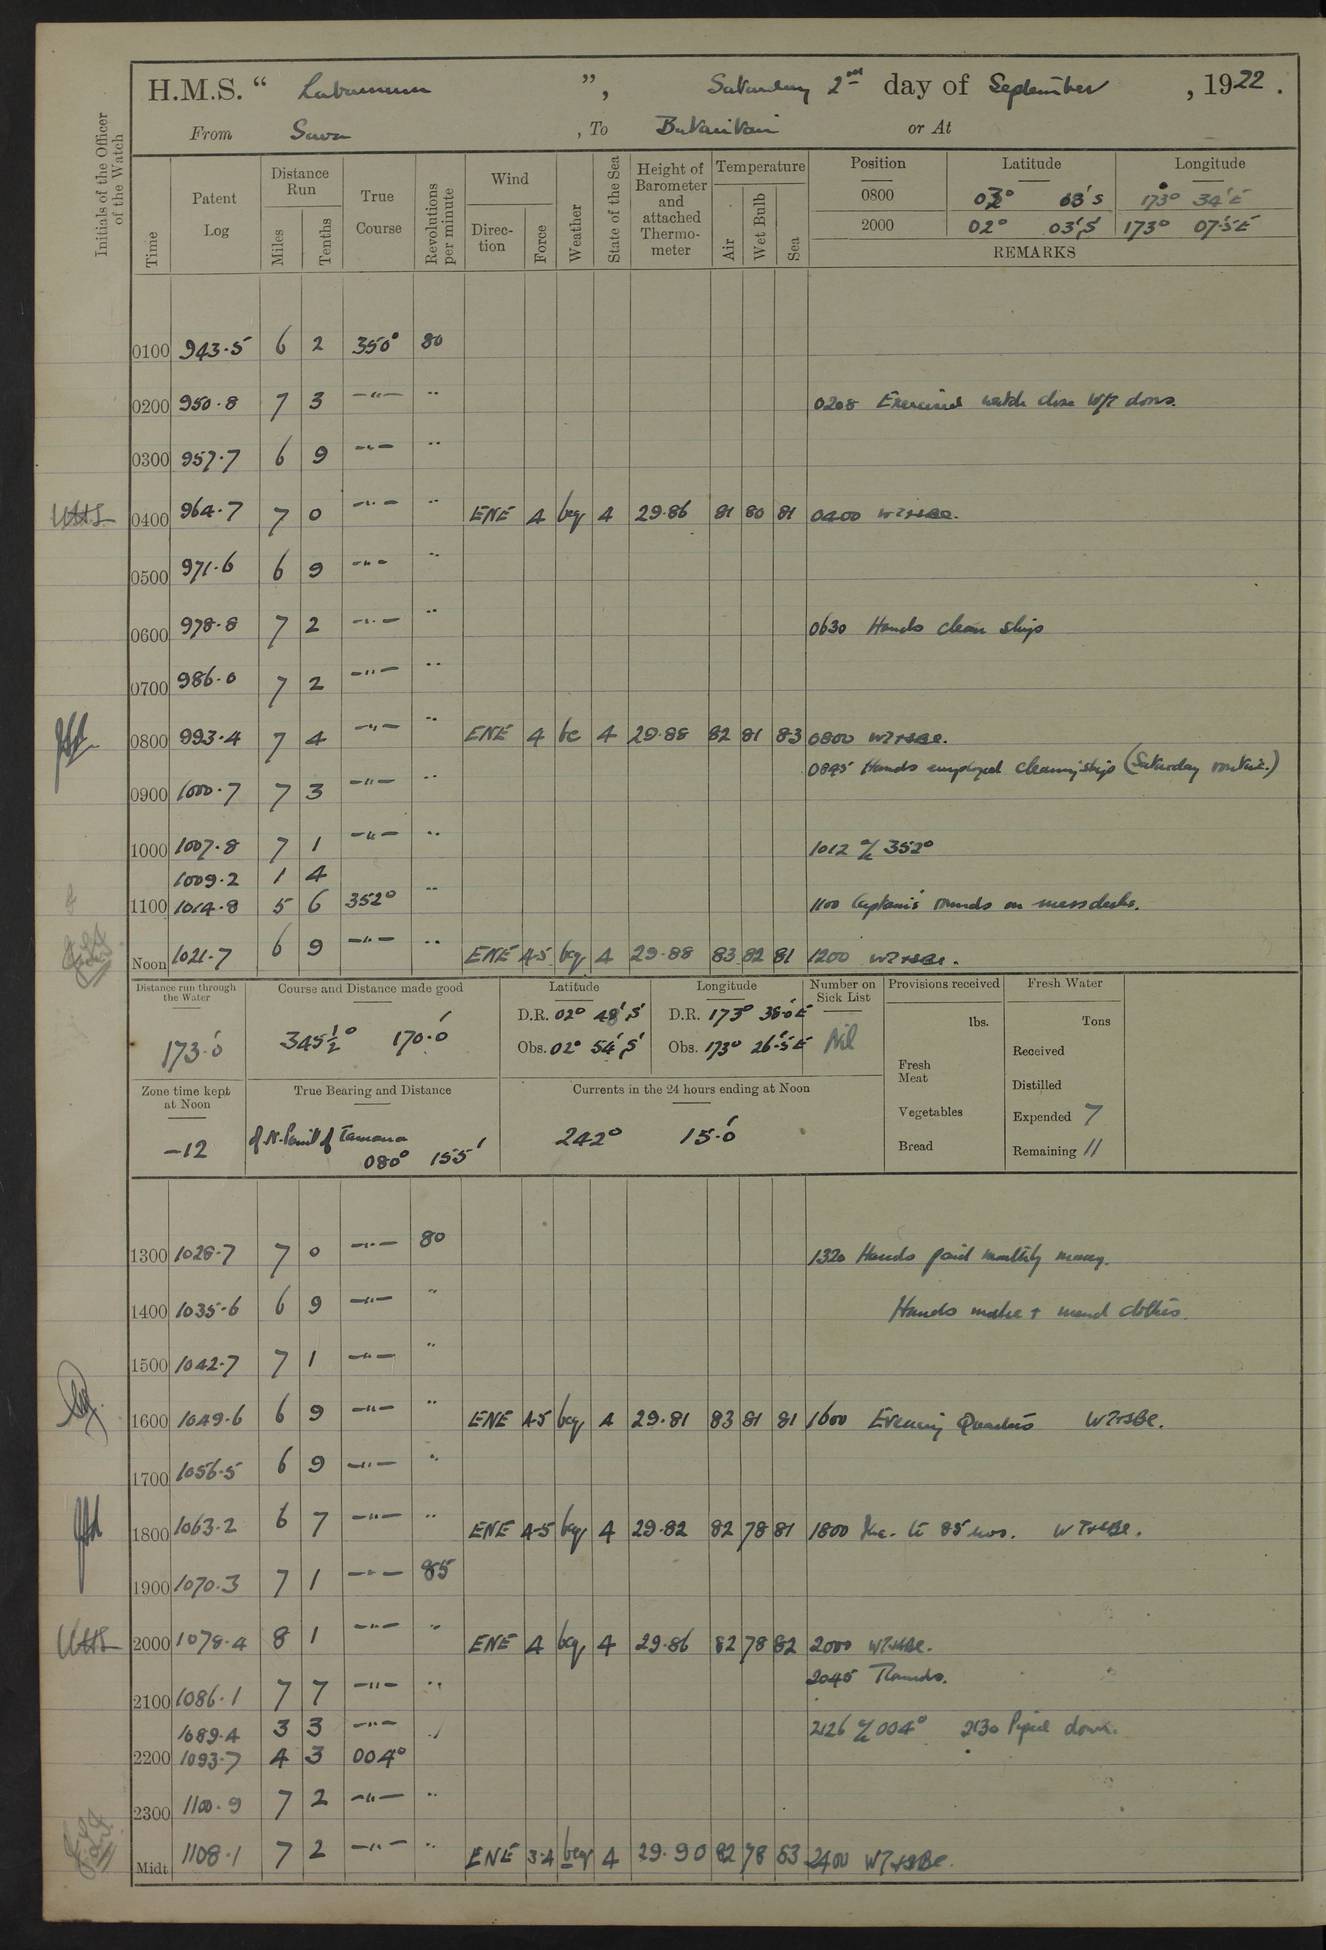 H.M.S. “ Laburnum ”, Saturday 2nd day of September, 1922.
From Suva, To Butaritari or At
Initials of the Officer of the Watch
Time Patent Log Distance Run Miles Tenths True Course Revolutions per minute Wind Direction Force Weather State of the Sea Height of Barometer and attached Thermometer Temperature Air Wet Bulb Sea Position Latitude Longitude
0800 03° 173° 34' E
2000 02° 03'S 173° 07.5'E
REMARKS
0100 943.5 6 2 350° 80
0200 950.8 7 3 —"— " 0208 Exercised watch close W/T doors.
0300 957.7 6 9 —"— "
0400 964.7 7 0 —"— " ENE 4 bcq 4 29.86 81 80 81 0400
0500 971.6 6 9 —"— "
0600 978.8 7 2 —"— " 0630 Hands clean ship
0700 986.0 7 2 —"— "
0800 993.4 7 4 —"— " ENE 4 bc 4 29.88 82 81 83 0800
0845 Hands employed cleaning ship (Saturday routine.)
0900 1000.7 7 3 —"— "
1000 1007.8 7 1 —"— " 1012 a/c 352°
1009.2 1 4
1100 1014.8 5 6 352° " 1100 Captain's rounds on messdecks.
Noon 1021.7 6 9 —"— " ENE 4-5 bcq 4 29.88 83 82 81 1200
Distance run through the Water Course and Distance made good Latitude Longitude Number on Sick List Provisions received Fresh Water
173.0' 345½° 170.0' D.R. 02° 48'S D.R. 173° 38.0'E Nil lbs. Tons
Obs. 02° 54'S Obs. 173° 26.5'E Fresh Meat Received
Zone time kept at Noon True Bearing and Distance Currents in the 24 hours ending at Noon Distilled
-12 of N. Point of Tamana 242° 15.0' Vegetables Expended 7
080° 155' Bread Remaining 11
1300 1028.7 7 0 —"— 80 1320 Hands paid monthly money.
1400 1035.6 6 9 —"— " Hands make + mend clothes.
1500 1042.7 7 1 —"— "
1600 1049.6 6 9 —"— " ENE 4-5 bcq 4 29.81 83 81 81 1600 Evening Quarters
1700 1056.5 6 9 —"— "
1800 1063.2 6 7 —"— " ENE 4-5 bcq 4 29.82 82 78 81 1800 Inc. to 85 revs.
1900 1070.3 7 1 —"— 85
2000 1078.4 8 1 —"— " ENE 4 bcq 4 29.86 82 78 82 2000
2045 Rounds.
2100 1086.1 7 7 —"— "
1089.4 3 3 —"— " 2126 a/c 004° 2130 Piped down.
2200 1093.7 4 3 004°
2300 1100.9 7 2 —"— "
Midt 1108.1 7 2 —"— " ENE 3-4 bcq 4 29.90 82 78 83 2400